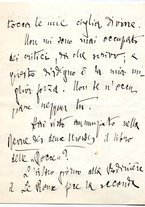 tocca le mie ciglia divine.
Non mi sono mai occupato
dei critici, da che scrivo, e
questo disdegno è la mia mi-
glior forza. Non te n'occu-
pare neppur tu.
Hai visto annunziato nella
Revue des deux Mondes il libro
delle
L'altro giorno alla
Le Roux per la seconda